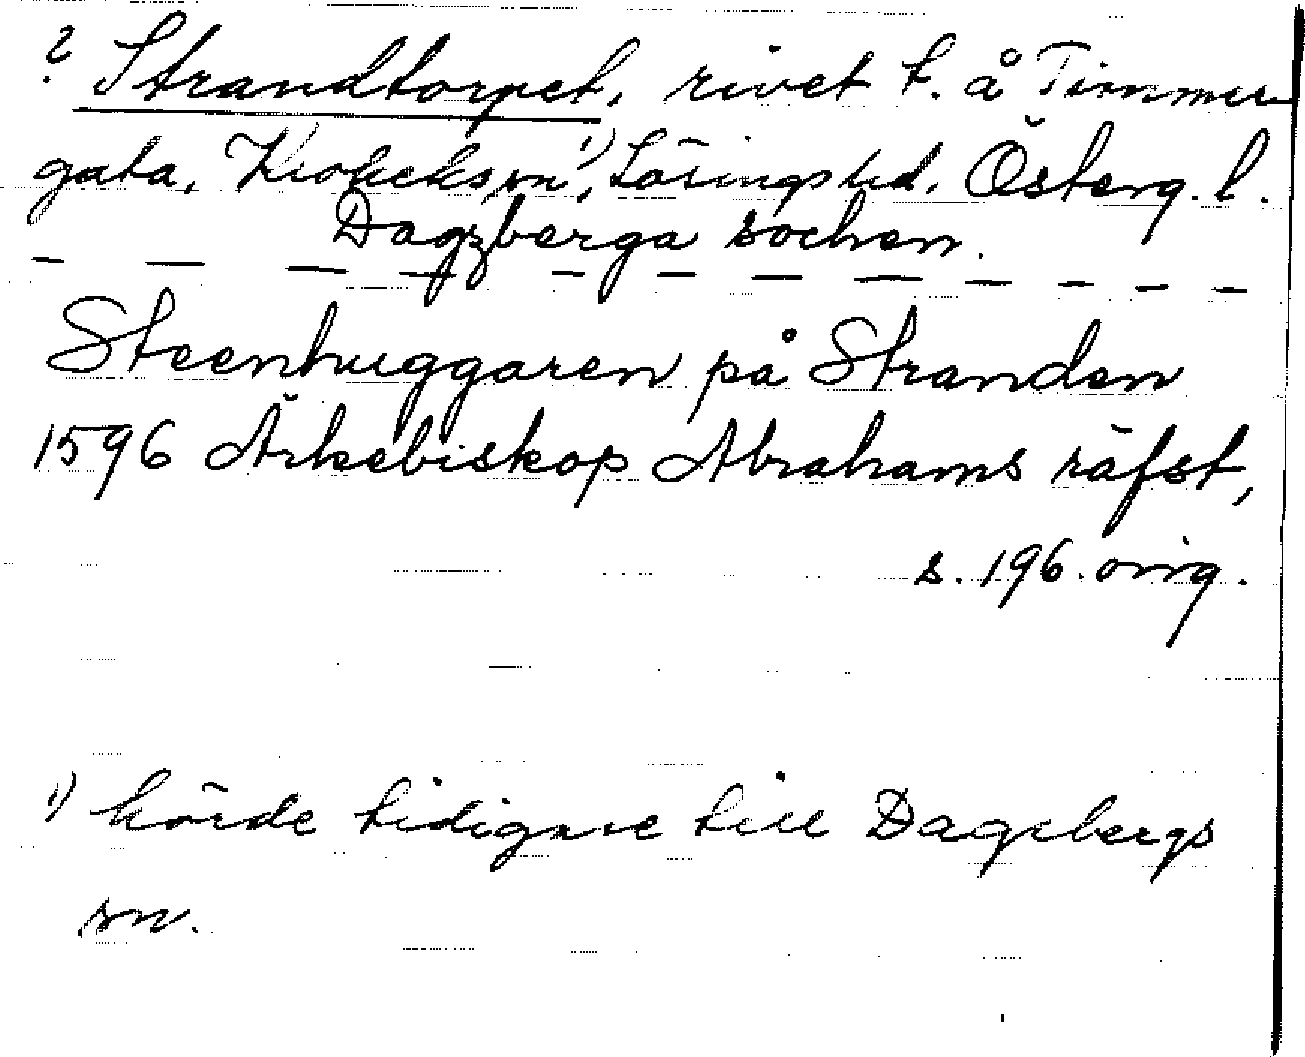 ? Strandtorpet, rivet t. å Timmer-
gata, Krokeks sn¹⁾, Lösings hd. Österg. l.
Dagzberga sochen.
— — — — — — — — — — — —
Steenhuggaren på Stranden
1596 Ärkebiskop Abrahams räfst,
s. 196. orig.
¹⁾ hörde tidigare till Dagsbergs
sn.